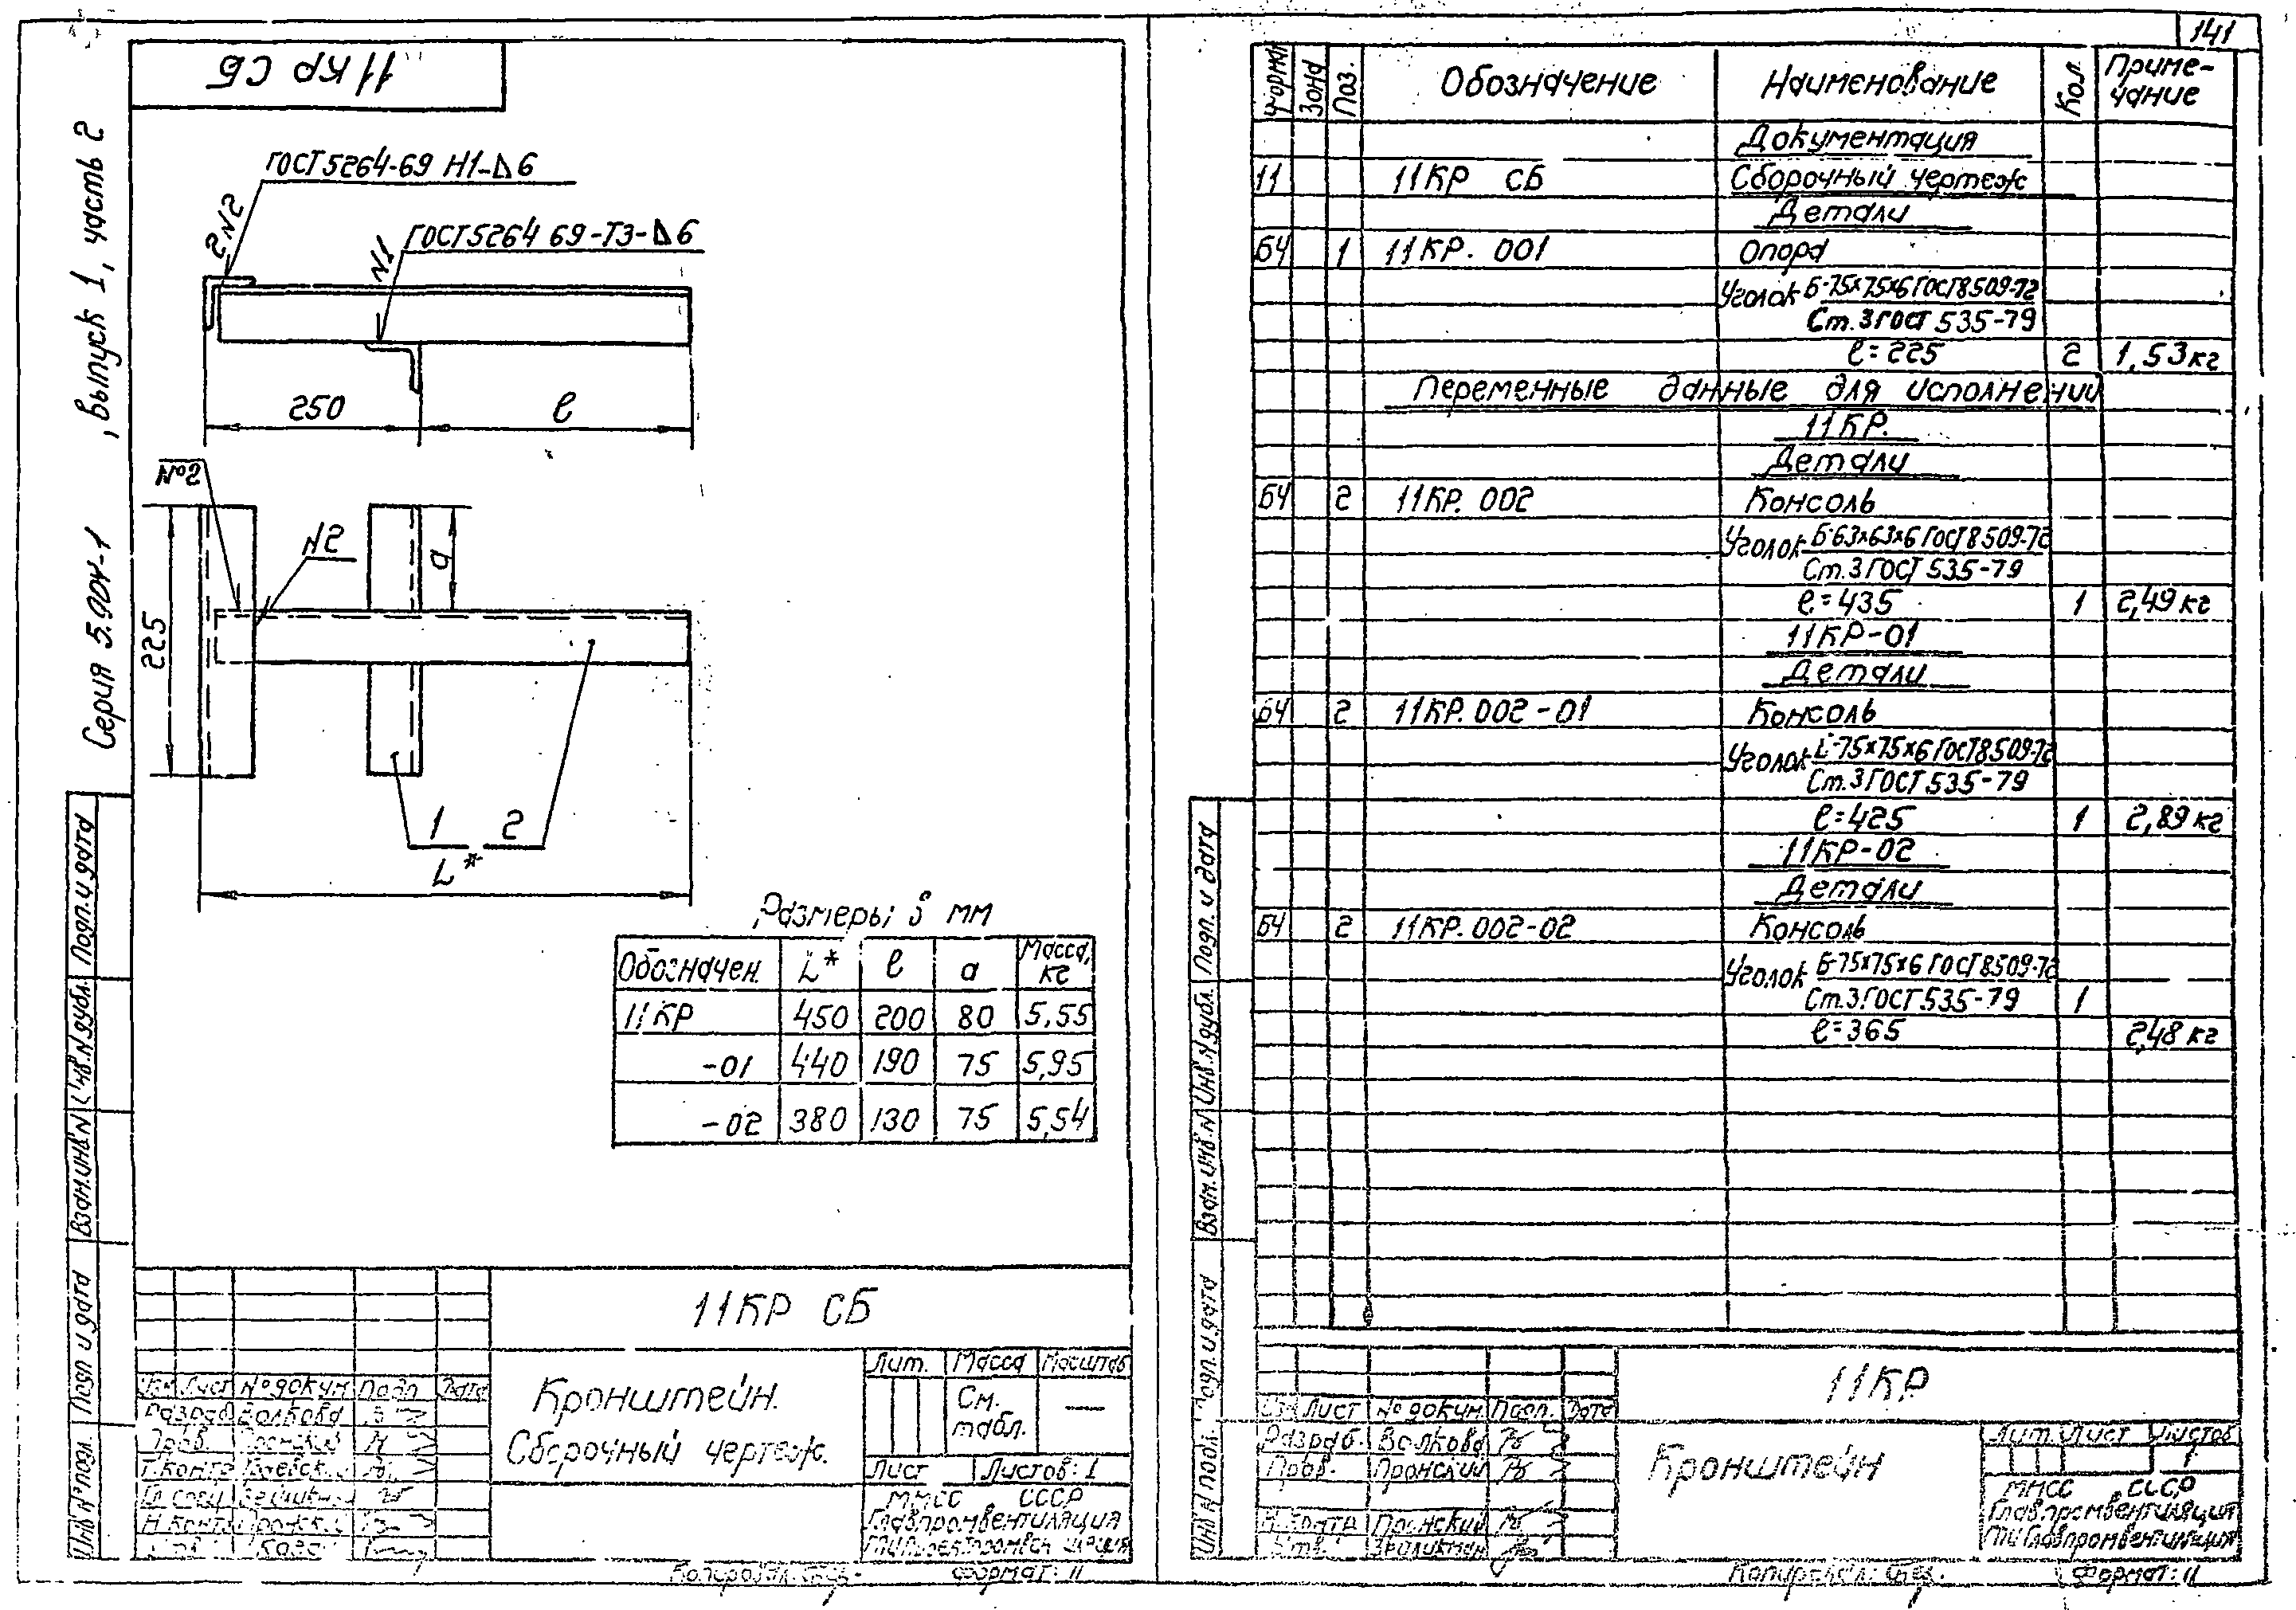 11 КР СБ
Серия 5.904-1 , выпуск 1, часть 2
ГОСТ 5264-69 Н1-⊿6
2 N2
ГОСТ 5264 69-Т3-⊿6
N1
250
ℓ
№2
N2
225
а
1
2
L*
Размеры в мм
Обозначен. L* ℓ а Масса, кг
11КР 450 200 80 5,55
-01 440 190 75 5,95
-02 380 130 75 5,54
Подп. и дата
Инв. N дубл.
Взам. инв. N
Подп и дата
Инв N° подл.
11КР СБ
Кронштейн.
Сборочный чертеж.
Лит. Масса Масштаб
См. табл. —
Лист Листов: 1
ММСС СССР
Главпромвентиляция
Изм Лист № докум. Подп. Дата
Разраб Волкова
Пров. Пронский
Т.контр
Гл спец
Н.контр Пронский
Утв.
Копировал:
Формат: 11
141
Формат Зона Поз. Обозначение Наименование Кол. Примечание
Документация
11 11КР СБ Сборочный чертеж
Детали
БЧ 1 11КР. 001 Опора
Уголок Б-75х75х6 ГОСТ 8509-72
Ст. 3 ГОСТ 535-79
ℓ=225 2 1,53кг
Переменные данные для исполнений
11КР.
Детали
БЧ 2 11КР. 002 Консоль
Уголок Б-63х63х6 ГОСТ 8509-72
Ст. 3 ГОСТ 535-79
ℓ=435 1 2,49кг
11КР-01
Детали
БЧ 2 11КР.002-01 Консоль
Уголок Б-75х75х6 ГОСТ 8509-72
Ст. 3 ГОСТ 535-79
ℓ=425 1 2,89кг
11КР-02
Детали
БЧ 2 11КР.002-02 Консоль
Уголок Б-75х75х6 ГОСТ 8509-72
Ст. 3 ГОСТ 535-79 1
ℓ=365 2,48кг
Подп. и дата
Инв. N дубл.
Взам. инв. N
Подп. и дата
Инв N подл.
11КР
Кронштейн
Лит. Лист Листов
1
ММСС СССР
Главпромвентиляция
Изм Лист № докум. Подп. Дата
Разраб. Волкова
Пров. Пронский
Н.контр Пронский
Утв. Зеликман
Копировал:
Формат: 11